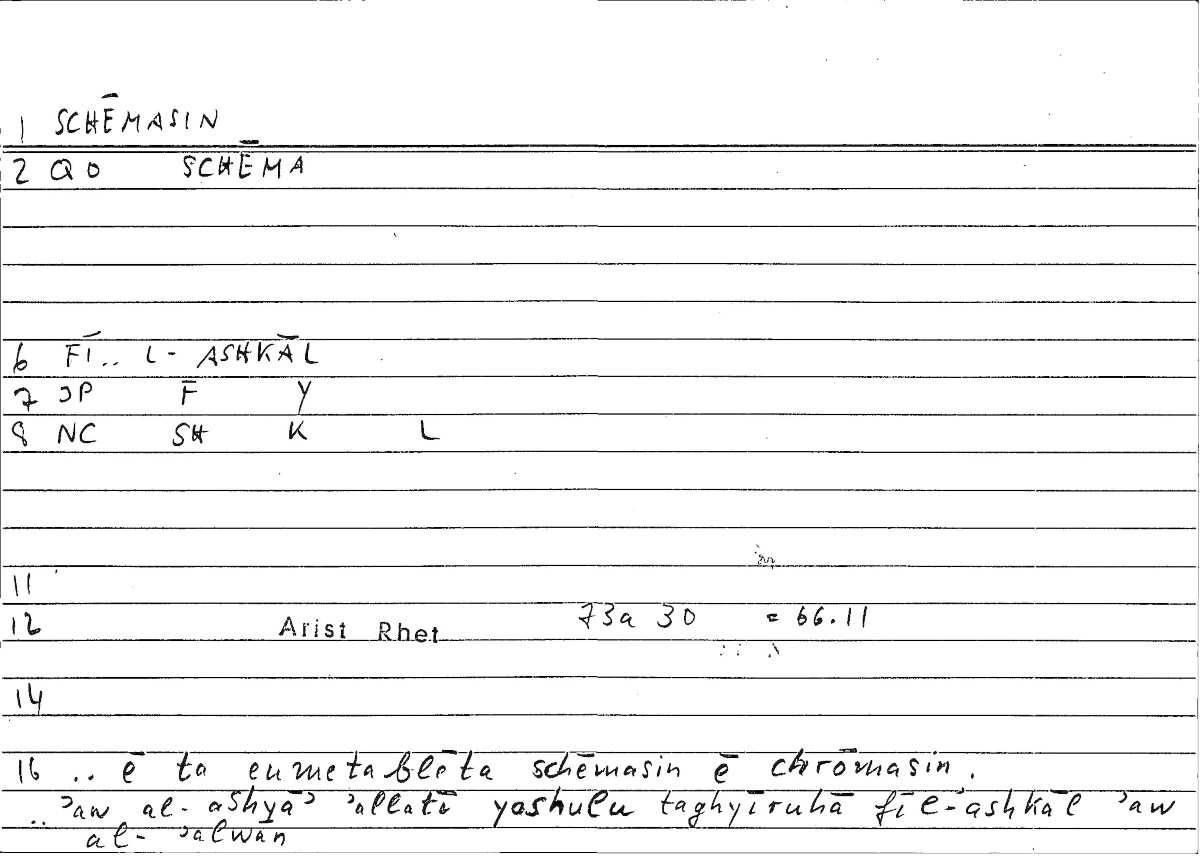 1 SCHĒMASIN
2 QO SCHĒMA
6 FĪ.. L- ASHKĀL
7 JP F̄ Y
8 NC SH K L
11
12 Arist Rhet 73a 30 = 66.11
14
16 .. ē ta eumetablēta schēmasin ē chrōmasin.
.. ʾaw al- ashyāʾ ʾallatī yashulu taghyīruhā fī l-ʾashkāl ʾaw
al- ʾalwān